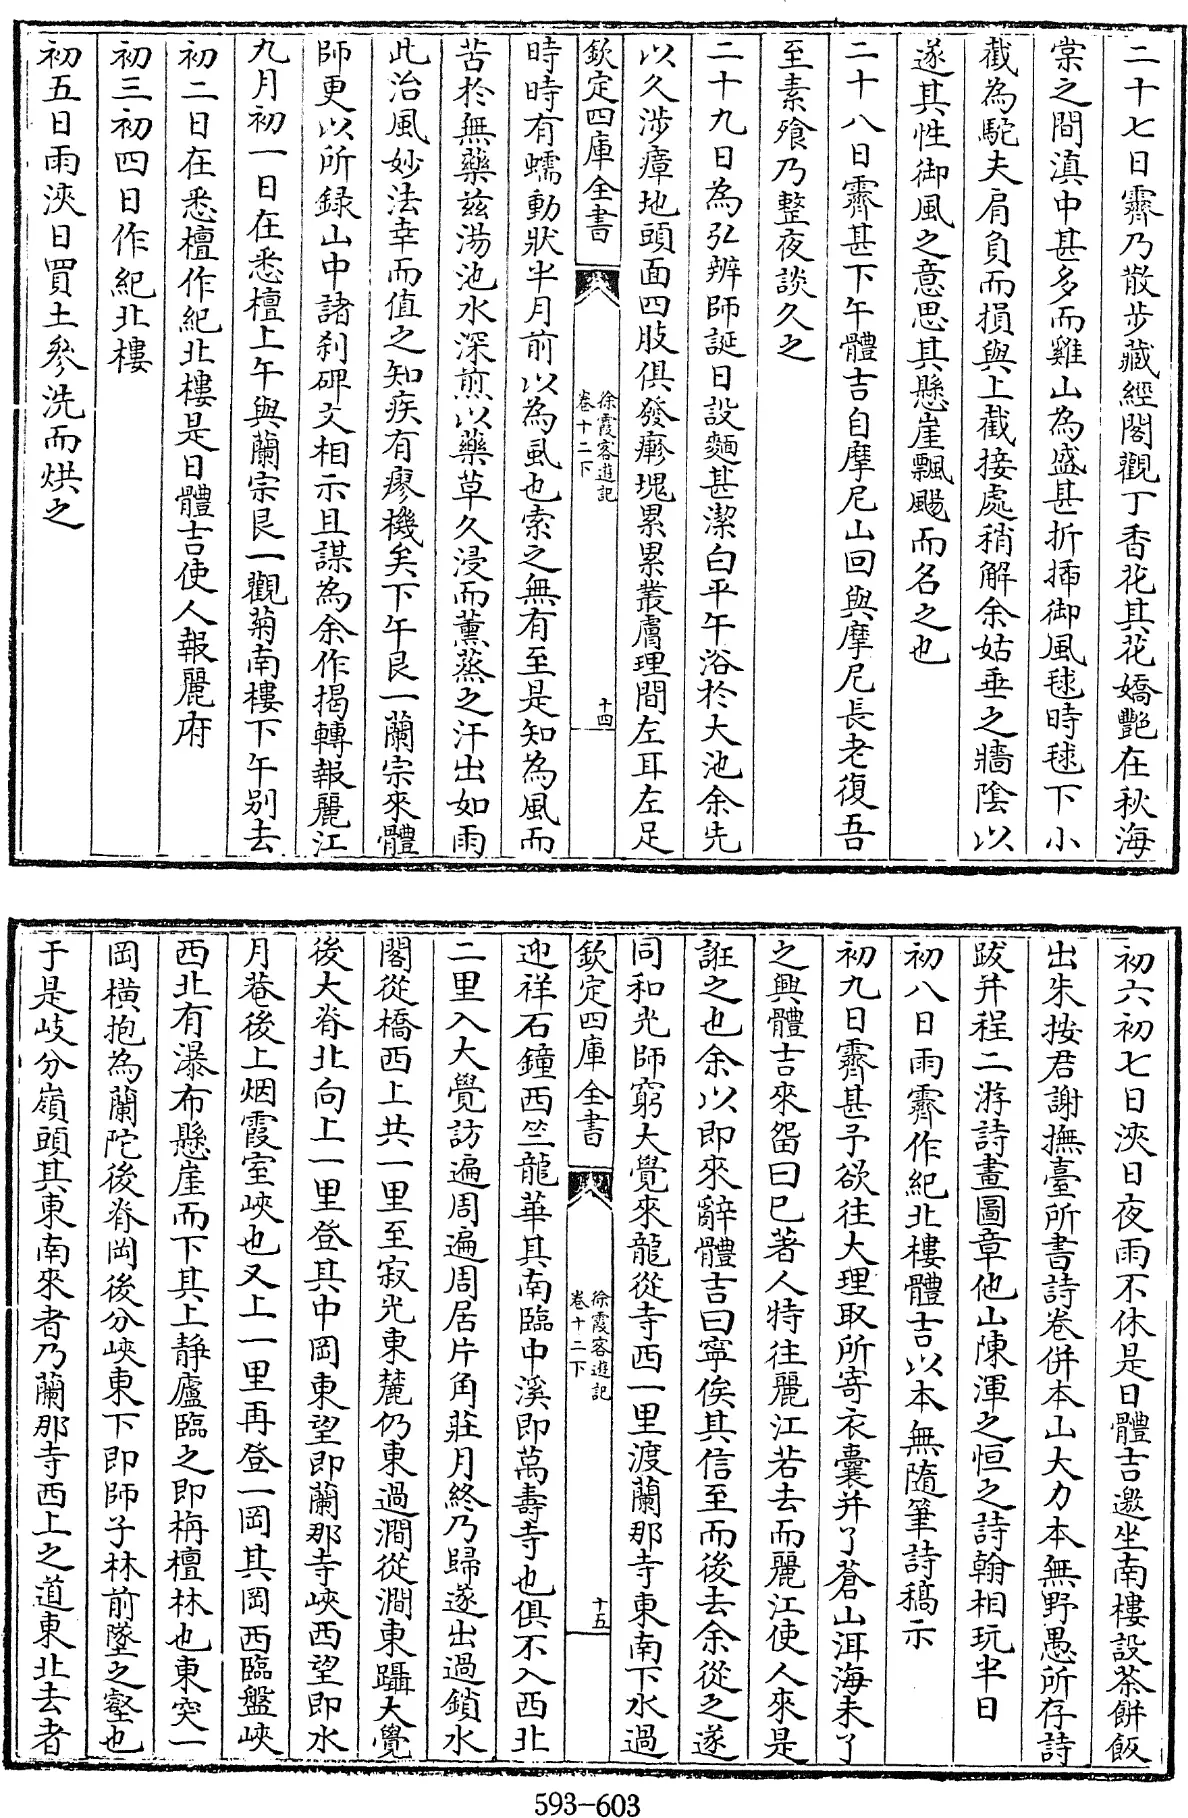 二十七日霽乃散步藏經閣觀丁香花其花嬌艷在秋海
棠之間滇中甚多而雞山為盛甚折插御風毬時毬下小
截為駝夫肩負而損與上截接處稍解余姑垂之牆陰以
遂其性御風之意思其懸崖飄颺而名之也
二十八日霽甚下午體吉自摩尼山回與摩尼長老復吾
至素飱乃整夜談久之
二十九日為弘辨師誕日設麵甚潔白平午浴於大池余先
以久涉瘴地頭面四肢俱發瘮塊累累叢膚理間左耳左足
欽定四庫全書
徐霞客遊記
卷十二下
十四
時時有蠕動狀半月前以為虱也索之無有至是知為風而
苦於無藥兹湯池水深煎以藥草久浸而薰蒸之汗出如雨
此治風妙法幸而值之知疾有瘳機矣下午艮一蘭宗來體
師更以所録山中諸刹碑文相示且謀為余作揭轉報麗江
九月初一日在悉檀上午與蘭宗艮一觀菊南樓下午别去
初二日在悉檀作紀北樓是日體吉使人報麗府
初三初四日作紀北樓
初五日雨浹日買土參洗而烘之
初六初七日浹日夜雨不休是日體吉邀坐南樓設茶餅飯
出朱按君謝撫臺所書詩卷併本山大力本無野愚所存詩
跋并程二游詩畫圖章他山陳渾之恒之詩翰相玩半日
初八日雨霽作紀北樓體吉以本無隨筆詩稿示
初九日霽甚予欲往大理取所寄衣囊并了蒼山洱海未了
之興體吉來畱曰已著人特往麗江若去而麗江使人來是
誑之也余以即來辭體吉曰寧俟其信至而後去余從之遂
同和光師窮大覺來龍從寺西一里渡蘭那寺東南下水過
欽定四庫全書
徐霞客遊記
卷十二下
十五
迎祥石鐘西竺龍華其南臨中溪即萬壽寺也俱不入西北
二里入大覺訪遍周遍周居片角莊月終乃歸遂出過鎖水
閣從橋西上共一里至寂光東麓仍東過澗從澗東躡大覺
後大脊北向上一里登其中岡東望即蘭那寺峽西望即水
月菴後上烟霞室峽也又上一里再登一岡其岡西臨盤峽
西北有瀑布懸崖而下其上靜廬臨之即栴檀林也東突一
岡橫抱為蘭陀後脊岡後分峽東下即師子林前墜之壑也
于是岐分嶺頭其東南來者乃蘭那寺西上之道東北去者
593-603